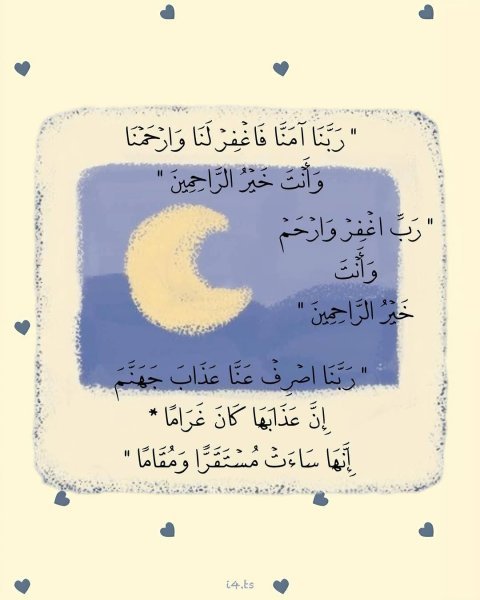 " رَبَّنَا آمَنَّا فَاغْفِرْ لَنَا وَارْحَمْنَا
وَأَنْتَ خَيْرُ الرَّاحِمِينَ "
" رَبِّ اغْفِرْ وَارْحَمْ
وَأَنْتَ
خَيْرُ الرَّاحِمِينَ "
" رَبَّنَا اصْرِفْ عَنَّا عَذَابَ جَهَنَّمَ
إِنَّ عَذَابَهَا كَانَ غَرَامًا *
إِنَّهَا سَاءَتْ مُسْتَقَرًّا وَمُقَامًا "
i4.ts